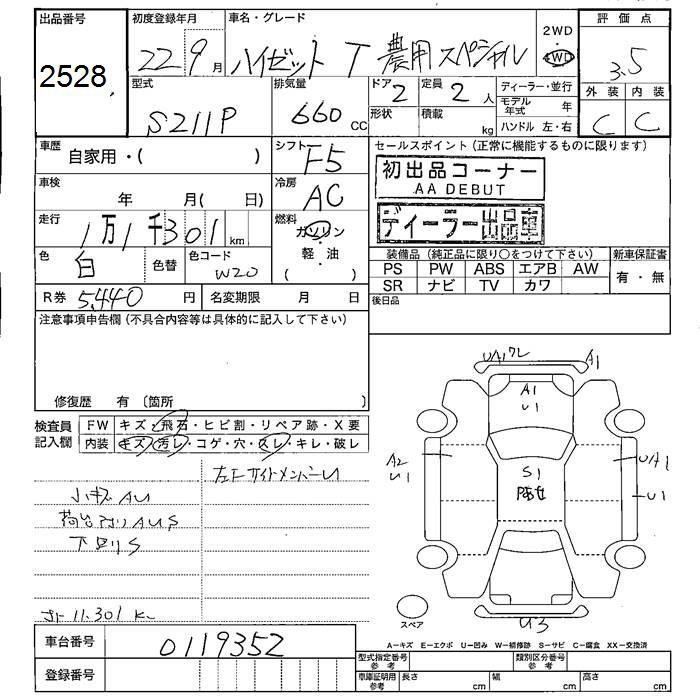 出品番号
2528
初度登録年月
22 9月
車名・グレード
ハイゼット T 農用スペシャル
2WD
4WD
評価点
3.5
外装 内装
C C
型式
S211P
排気量
660 CC
ドア 2
形状
定員 2 人
積載 kg
ディーラー・並行
モデル年式 年
ハンドル 左・右
車歴
自家用・( )
シフト F5
車検 年 月( 日)
冷房 AC
走行
1万1千301 km
燃料
ガソリン
軽・油
( )
色 白 色替
色コード W20
R券 5,440 円
名変期限 月 日
セールスポイント(正常に機能するものに限ります)
初出品コーナー
AA DEBUT
ディーラー出品車
装備品(純正品に限り○をつけて下さい)
新車保証書
PS PW ABS エアB AW
SR ナビ TV カワ
有・無
後日品
注意事項申告欄(不具合内容等は具体的に記入して下さい)
修復歴 有〔箇所 〕
検査員記入欄
FW キズ・飛石・ヒビ割・リペア跡・X要
内装 キズ・汚レ・コゲ・穴・スレ・キレ・破レ
左F サイドメンバーU
小キズ AU
荷台 AUS
下回りS
11,301 K
UA1ワレ
A1
A1
U1
A2
U1
UA1
U1
S1
U3
スペア
A-キズ E-エクボ U-凹み W-補修跡 S-サビ C-腐食 XX-交換済
車台番号
0119352
登録番号
型式指定番号 参考
類別区分番号 参考
車庫証明用 参考
長さ cm
幅 cm
高さ cm